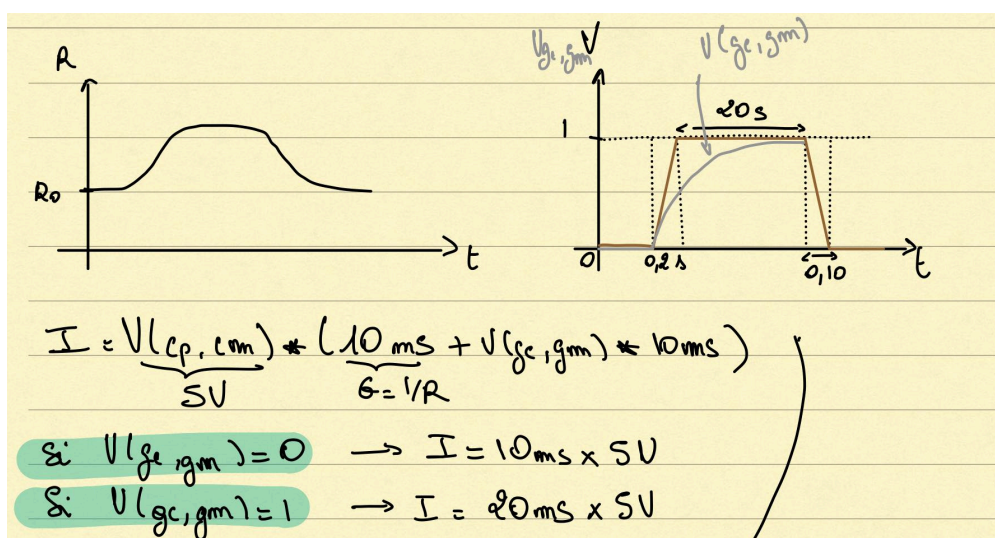 R
R0
t
Vgc,gm V
V(gc,gm)
20 s
1
0
0,2 s
0,10
t
I = V(cp, cm) * (10 ms + V(gc, gm) * 10ms)
5V
G = 1/R
Si V(gc, gm) = 0 → I = 10ms x 5V
Si V(gc, gm) = 1 → I = 20ms x 5V